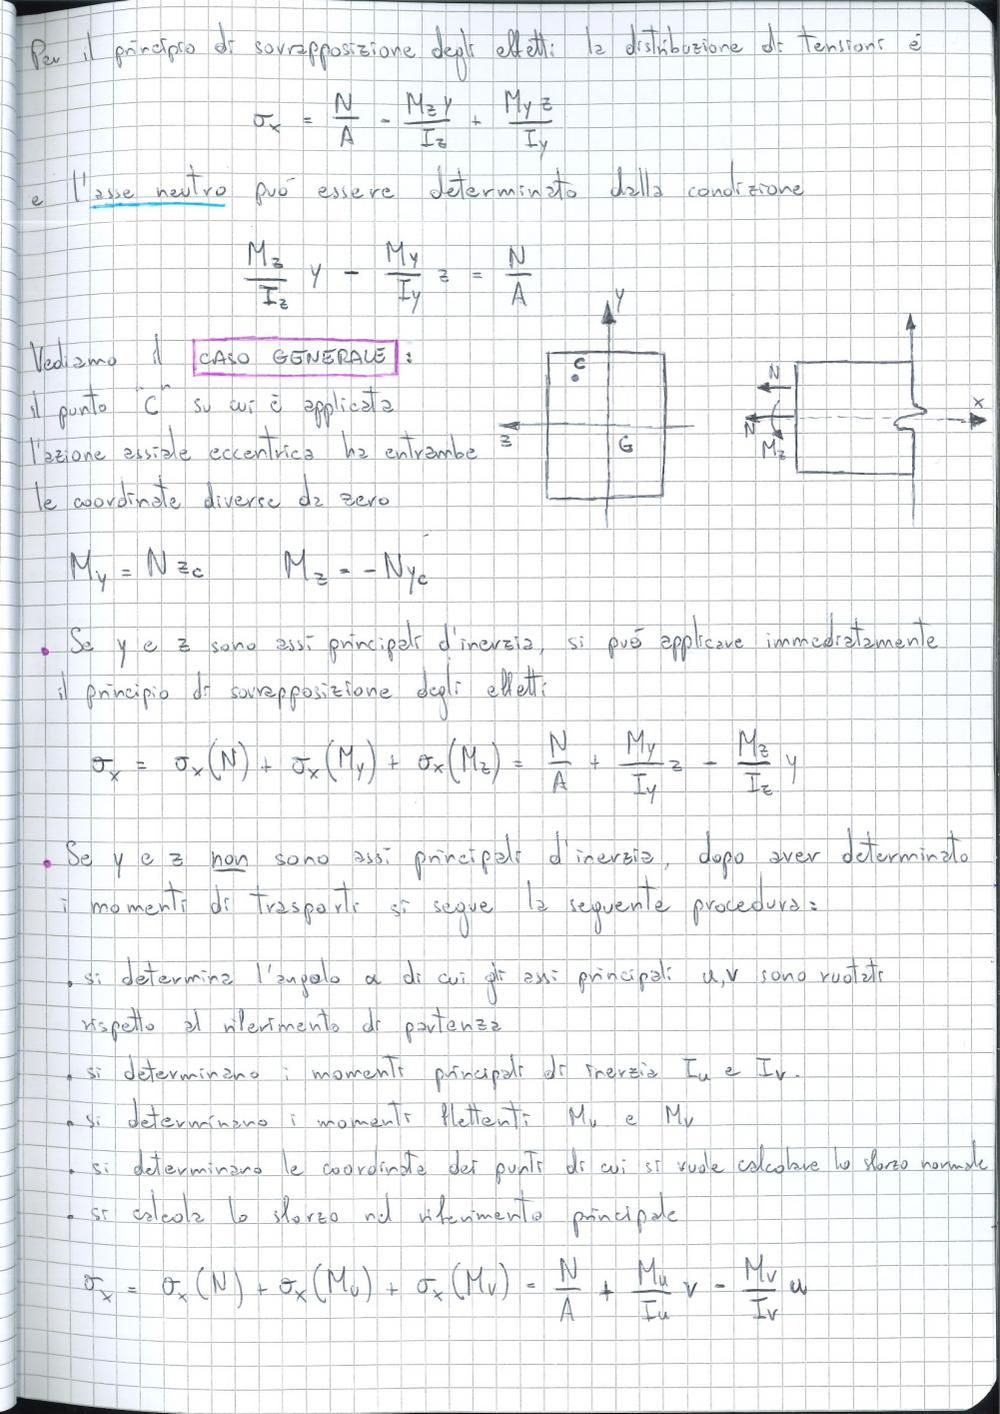 Per il principio di sovrapposizione degli effetti la distribuzione di tensioni è
σx = N/A - Mz y/Iz + My z/Iy
e l'asse neutro può essere determinato dalla condizione
Mz/Iz y - My/Iy z = N/A
Vediamo il CASO GENERALE:
il punto "C" su cui è applicata
l'azione assiale eccentrica ha entrambe
le coordinate diverse da zero
y
C
z
G
N
N
Mz
x
My = N zc Mz = -Nyc
• Se y e z sono assi principali d'inerzia, si può applicare immediatamente
il principio di sovrapposizione degli effetti
σx = σx(N) + σx(My) + σx(Mz) = N/A + My/Iy z - Mz/Iz y
• Se y e z non sono assi principali d'inerzia, dopo aver determinato
i momenti di trasporti si segue la seguente procedura:
• si determina l'angolo α di cui gli assi principali u,v sono ruotati
rispetto al riferimento di partenza
• si determinano i momenti principali di inerzia Iu e Iv.
• si determinano i momenti flettenti Mu e Mv
• si determinano le coordinate dei punti di cui si vuole calcolare lo sforzo normale
• si calcola lo sforzo nel riferimento principale
σx = σx(N) + σx(Mu) + σx(Mv) = N/A + Mu/Iu v - Mv/Iv u